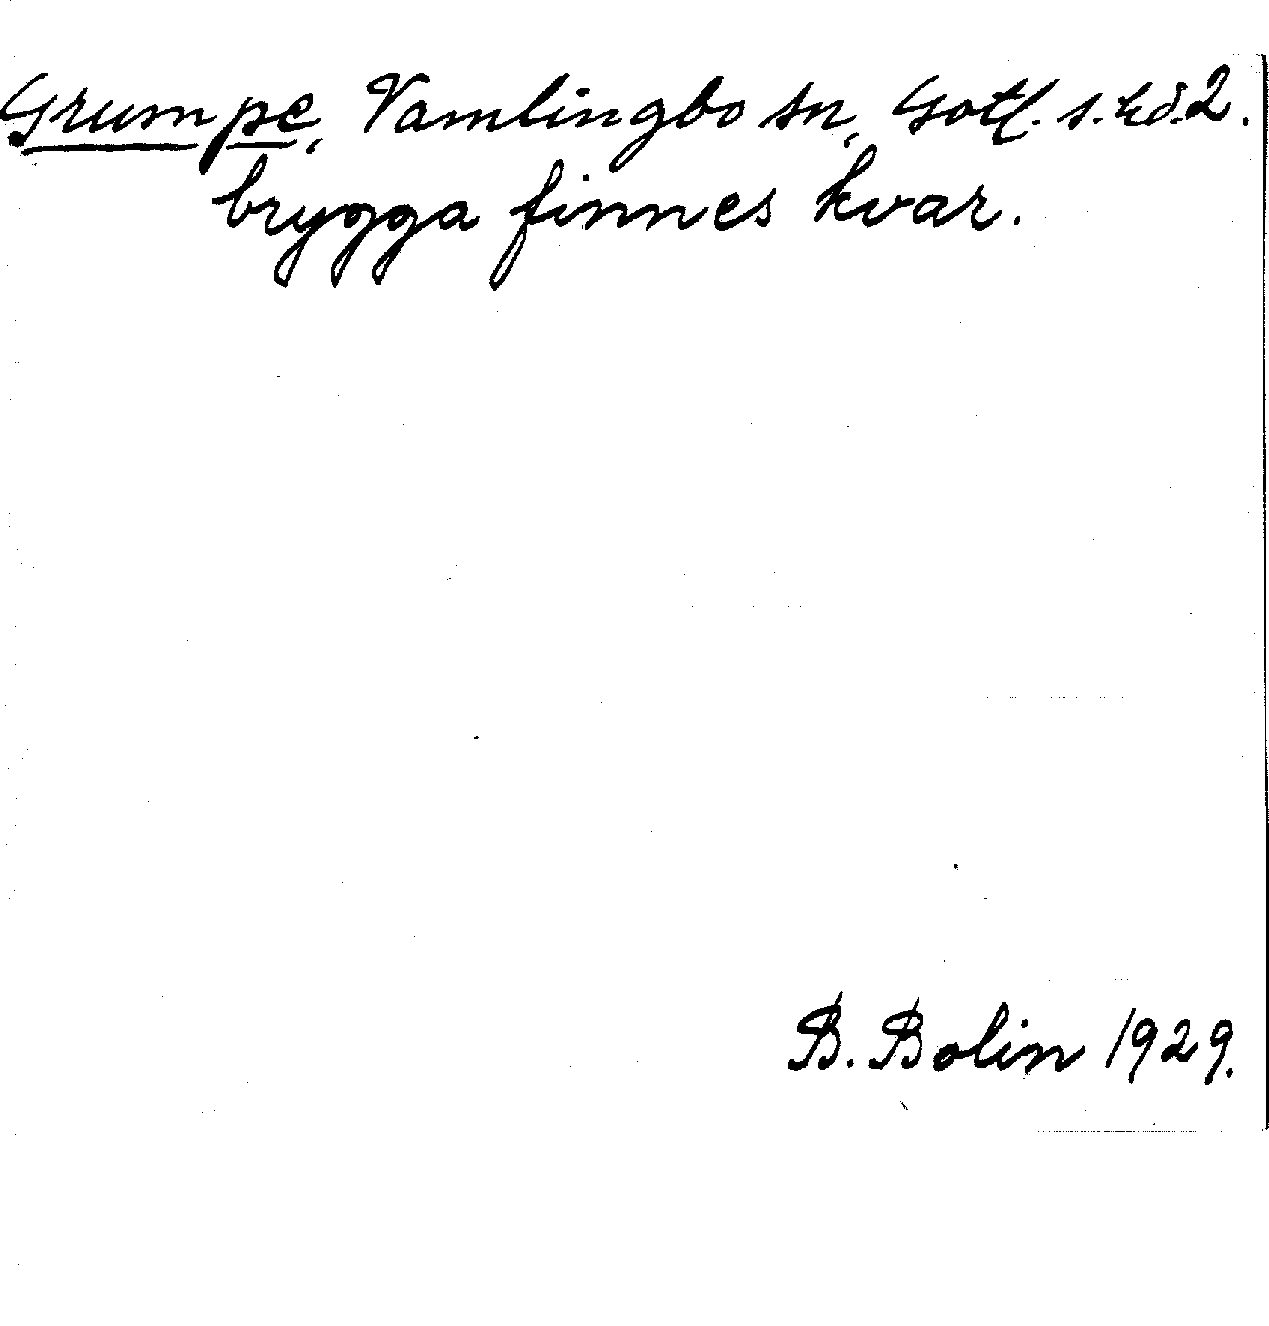 Grumpe, Vamlingbo sn, Gotl. s. hd. 2.
brygga finnes kvar.
B. Bolin 1929.